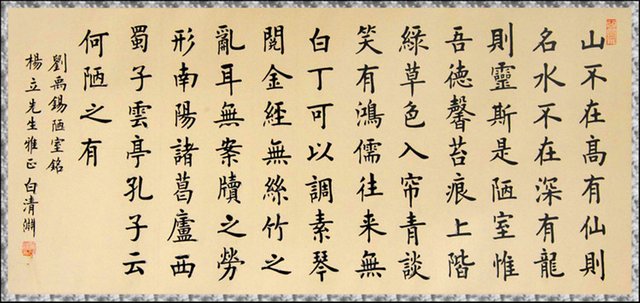 山不在高有仙則
名水不在深有龍
則靈斯是陋室惟
吾德馨苔痕上階
綠草色入帘青談
笑有鴻儒往來無
白丁可以調素琴
閱金經無絲竹之
亂耳無案牘之勞
形南陽諸葛廬西
蜀子雲亭孔子云
何陋之有
劉禹錫陋室銘
楊立先生雅正 白清淵